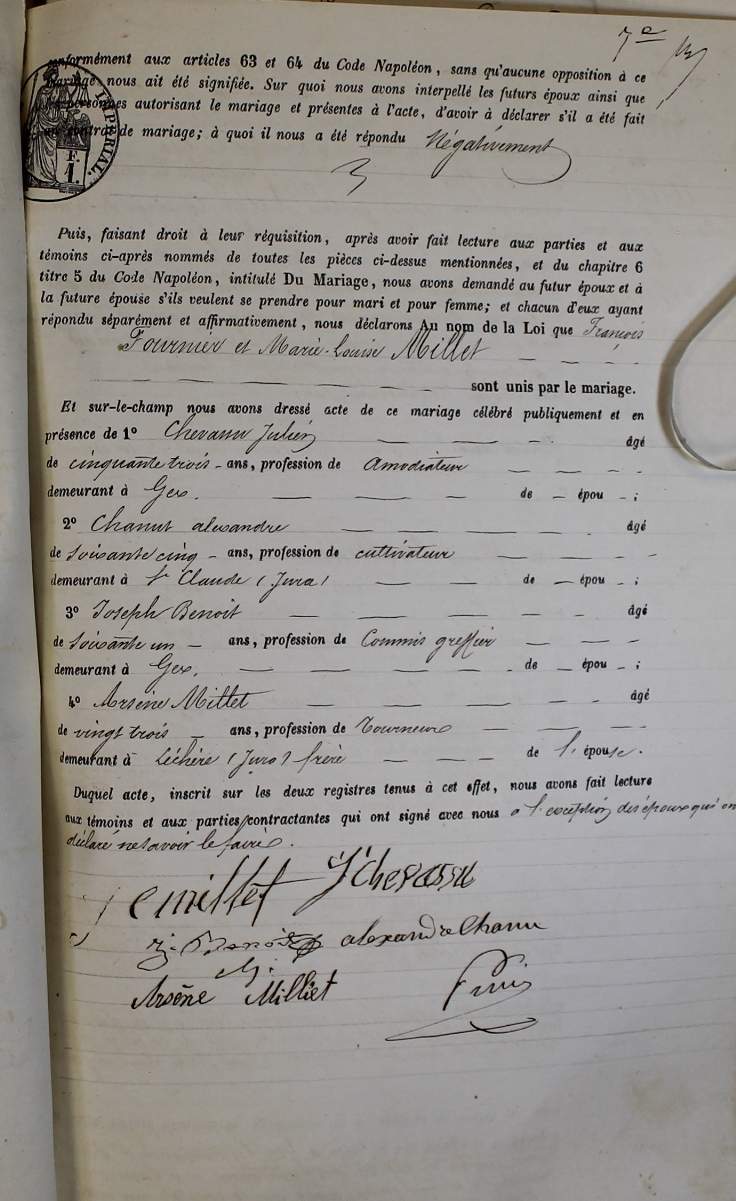 7e
conformément aux articles 63 et 64 du Code Napoléon, sans qu'aucune opposition à ce
mariage nous ait été signifiée. Sur quoi nous avons interpellé les futurs époux ainsi que
les personnes autorisant le mariage et présentes à l'acte, d'avoir à déclarer s'il a été fait
un contrat de mariage; à quoi il nous a été répondu Négativement
IMPERIAL.
F.
1.
Puis, faisant droit à leur réquisition, après avoir fait lecture aux parties et aux
témoins ci-après nommés de toutes les pièces ci-dessus mentionnées, et du chapitre 6
titre 5 du Code Napoléon, intitulé Du Mariage, nous avons demandé au futur époux et à
la future épouse s'ils veulent se prendre pour mari et pour femme; et chacun d'eux ayant
répondu séparément et affirmativement, nous déclarons Au nom de la Loi que François
Fournier et Marie-Louise Millet — — —
— — — — — — — sont unis par le mariage.
Et sur-le-champ nous avons dressé acte de ce mariage célébré publiquement et en
présence de 1° Chevassu Julien — — — âgé
de cinquante trois - ans, profession de amodiateur — — —
demeurant à Gex. — — — de — épou - ;
2° Chanut alexandre — — — — — âgé
de soixante cinq - ans, profession de cultivateur — — — —
demeurant à St Claude (Jura) — — de — épou - ;
3° Joseph Benoit — — — — — âgé
de soixante un — ans, profession de Commis greffier — — —
demeurant à Gex. — — — — de — épou - ;
4° Arsène Millet — — — — — âgé
de vingt trois — ans, profession de Tourneur — — —
demeurant à Léchère (Jura) frère — — de l'épouse.
Duquel acte, inscrit sur les deux registres tenus à cet effet, nous avons fait lecture
aux témoins et aux parties contractantes qui ont signé avec nous a l'exception des époux qui on
déclaré ne savoir le faire.
millet J Chevassu
j. Benoit alexandre Chanu
Arsène Milliet